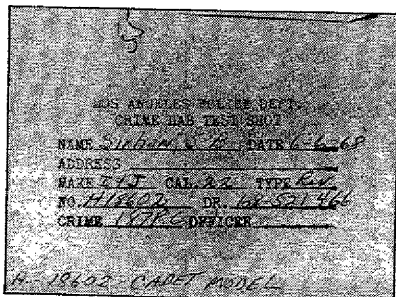 LOS ANGELES POLICE DEPT.
CRIME LAB TEST SHOT
NAME Sirhan, S B DATE 6-6-68
ADDRESS
MAKE I+J CAL. 22 TYPE Rev
NO. H18602 DR. 68-521466
CRIME 187PC OFFICER
H-18602 - CADET MODEL